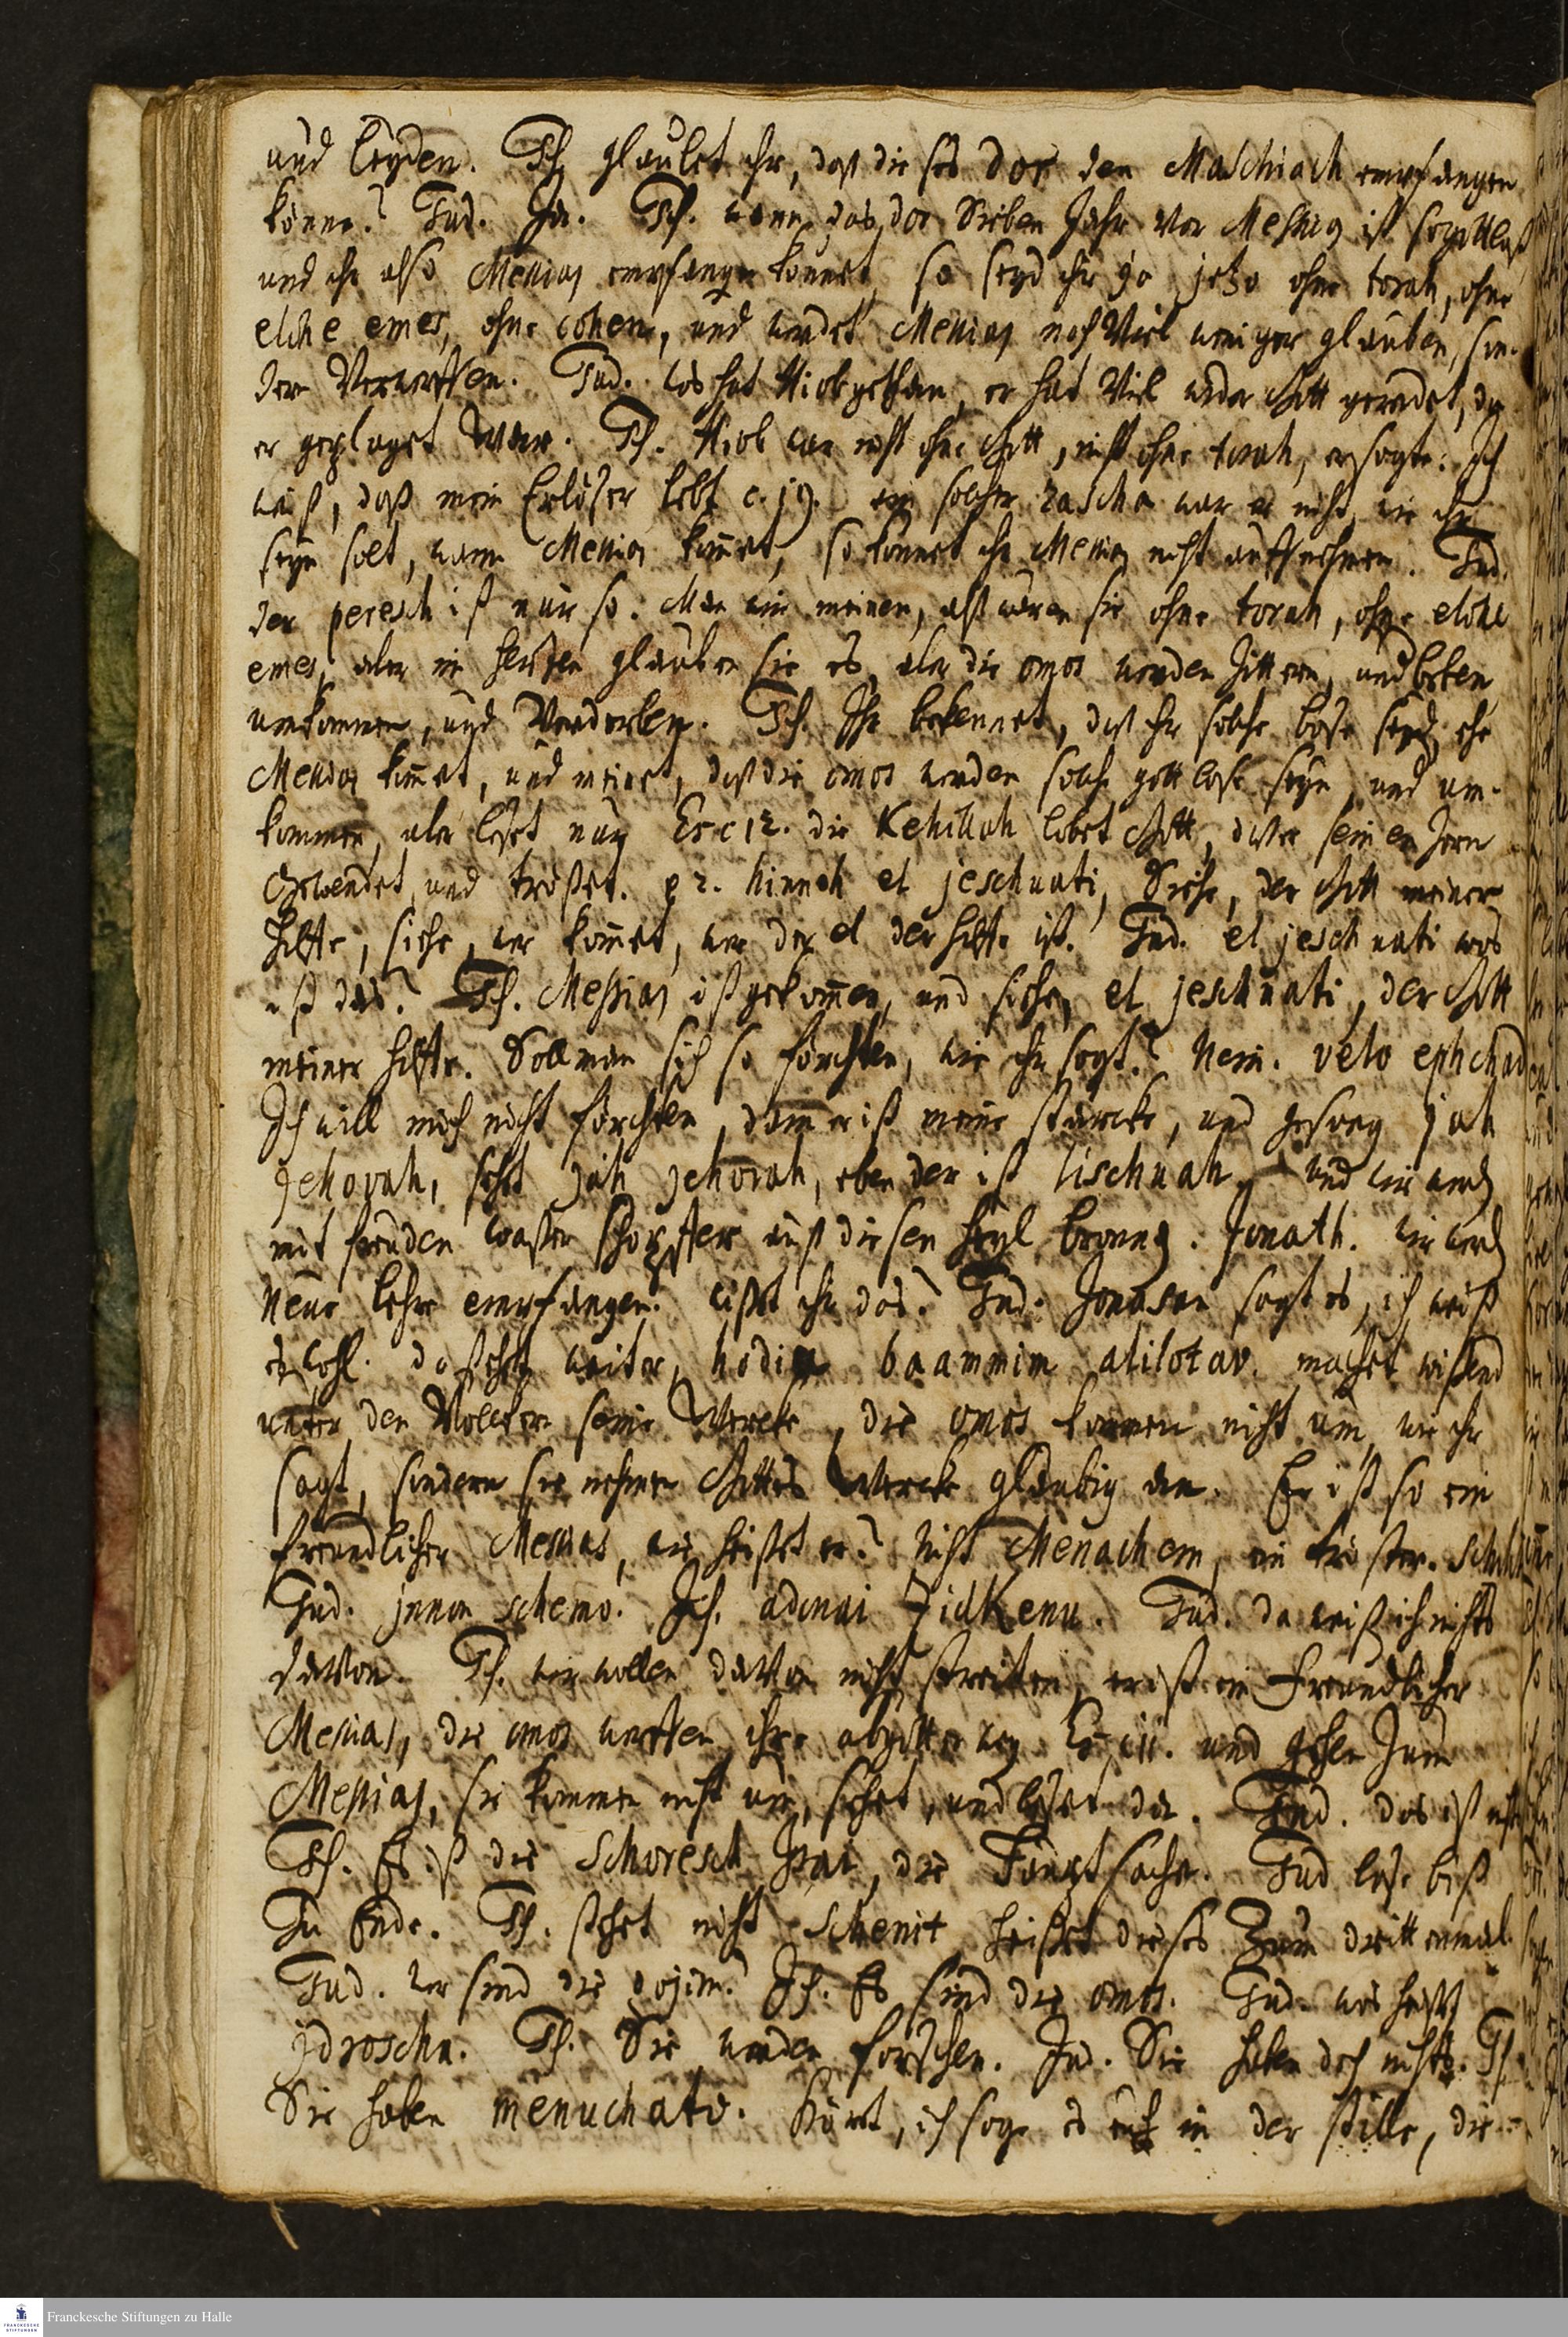 und leyden. Ich glaubet ihr, daß dieses dor den Maschiach empfangen
könne? Jud. Ja. Ich. wenn das dor sieben Jahr vor Messias ist so gottloß
und ihr also Messias empfangen könnet, so seyd ihr ja jetzo ohne torah, ohne
elohe emes, ohne cohen, und werdet Messias noch viel weniger glauben, son-
dern verwerffen. Jud. was hat Hiob gethan, er hat viel wider Gott geredet, da
er geplaget war. Ich. Hiob war nicht ohne Gott, nicht ohne torah, er sagte: Ich
weiß, daß mein Erlöser lebt c. 19. ein solcher rascha war er nicht, wie ihr
seyn solt, wann Messias kommet, so könnet ihr Messias nicht aufnehmen. Jud.
der peresch ist nur so: Man wird meinen, alß wären sie ohne torah, ohne elohe
emes, aber im hertzen glauben sie es, aber die omos werden zittern, und beben
umkommen, und verderben. Ich. Ihr bekennet, daß ihr solche böse seyd, ehe
Messias kommet, und meinet, daß die omos werden solche gottlose seyn, und um-
kommen, aber leset nun Es. c 12. die Kehillah lobet Gott, daß er seinen Zorn
gewendet, und tröstet. p 2. hinneh el jeschuati, Siehe, der Gott meiner
hilffe, siehe, wer kommet, wer der el der hilffe ist. Jud. el jeschuati was
ist das? Ich. Messias ist gekommen, und siehe, el jeschuati, der Gott
meiner hilffe. Soll man sich so förchten, wie ihr sagt? Nein. velo ephchad
Ich will mich nicht förchten, dann er ist meine stärcke, und gesang jah
Jehovah, seht jah Jehovah, eben der ist lischuah, und wir werden
mit freuden wasser schöpffen auß diesen heyl brunnen. Jonath. wir werden
neue lehre empfangen. wißt ihr das? Jud. Jonasan sagt es, ich weiß
es wohl. da stehet weiter, hodiu baammim alilotav. machet wißend
unter den Völckern seine Wercke, die omos kommen nicht um, wie ihr
sagt, sondern sie nehmen Gottes Wercke glaubig an. Er ist so ein
freundlicher Messias, wie heißet er? Nicht Menachem, ein tröster.
Jud. jnnon schemo. Ich. adonai Zidkenu. Jud. da weiß ich nichts
davon. Ich. wir wollen davon nicht streiten, er ist ein freundlicher
Messias, die omos werffen ihre abgötter weg Es. c 11. und gehen zum
Messias, sie kommen nicht um, sehet, und leset da. Jud. das ist nichts
Ich. Es ist die Schoresch Isai, die Hauptsache. Jud lese biß
zu Ende. Ich. stehet nicht schenit, heißet dieses zum drittenmal.
Jud. wer sind die gojim? Ich. Es sind die omos. Jud. was heißt
jdroschu. Ich. Sie werden forschen. Jud. Sie haben doch nichts. Ich
Sie haben menuchato. Höret, ich sage es euch in der stille, die
Franckesche Stiftungen zu Halle